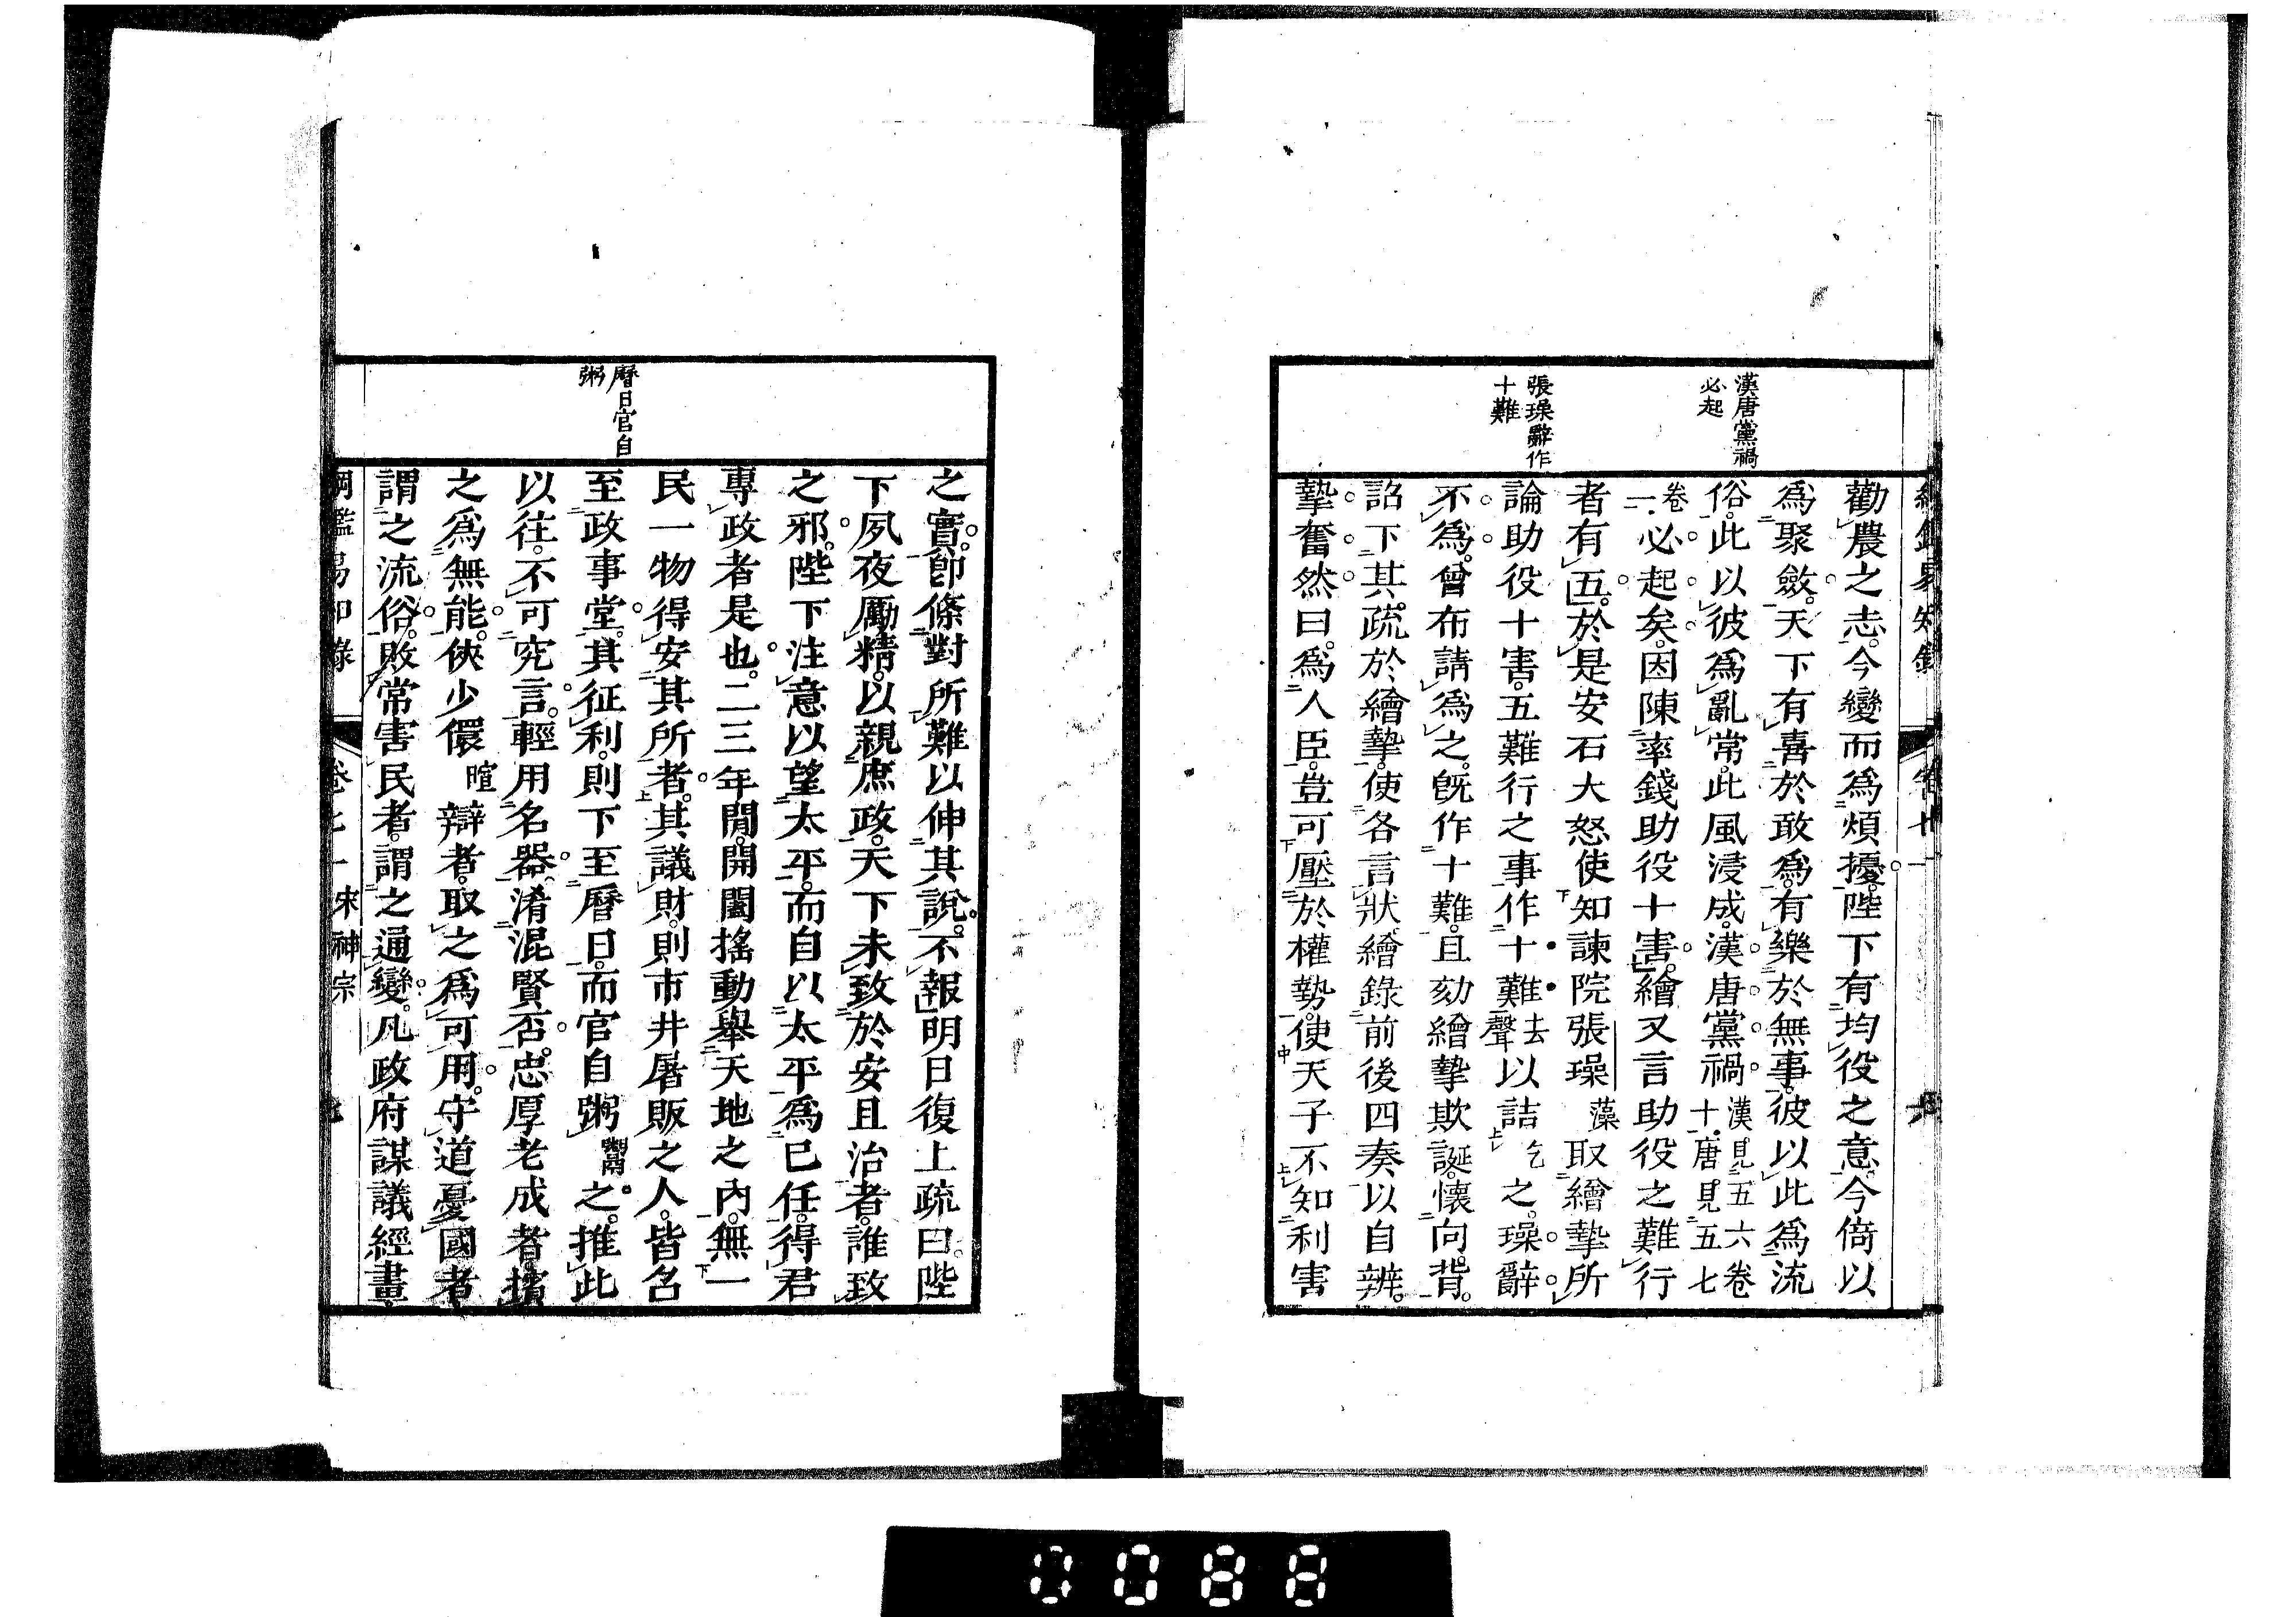 漢唐黨禍
必起
張璪辭作
十難
勸農之志。今變而爲煩擾。陛下有均役之意。今倚以
爲聚斂。天下有喜於敢爲。有樂於無事。彼以此爲流
俗。此以彼爲亂常。此風浸成。漢唐黨禍漢見五六卷十。唐見五七
卷一。必起矣。因陳率錢助役十害。繪又言助役之難行
者有五。於是安石大怒使知諫院張璪藻取繪摯所
論助役十害。五難行之事作十難去聲以詰乞之。璪辭
不爲。曾布請爲之。既作十難。且劾繪摯欺誕。懷向背。
詔下其疏於繪摯。使各言狀繪錄前後四奏以自辨。
摯奮然曰。爲人臣。豈可壓於權勢。使天子不知利害
曆日官自
粥
之實。卽條對所難以伸其說。不報明日復上疏曰。陛
下夙夜厲精。以親庶政。天下未致於安且治者。誰致
之邪。陛下注意以望太平。而自以太平爲已任。得君
專政者是也。二三年閒。開闔搖動舉天地之內。無一
民一物得安其所者。其議財。則市井屠販之人。皆召
至政事堂。其征利。則下至曆日。而官自粥鬻之。推此
以往。不可究言。輕用名器。淆混賢否。忠厚老成者。擯
之爲無能。俠少儇暄辯者。取之爲可用。守道憂國者
謂之流俗。敗常害民者。謂之通變。凡政府謀議經畫。
綱鑑易知錄 卷七一 宋神宗
0088